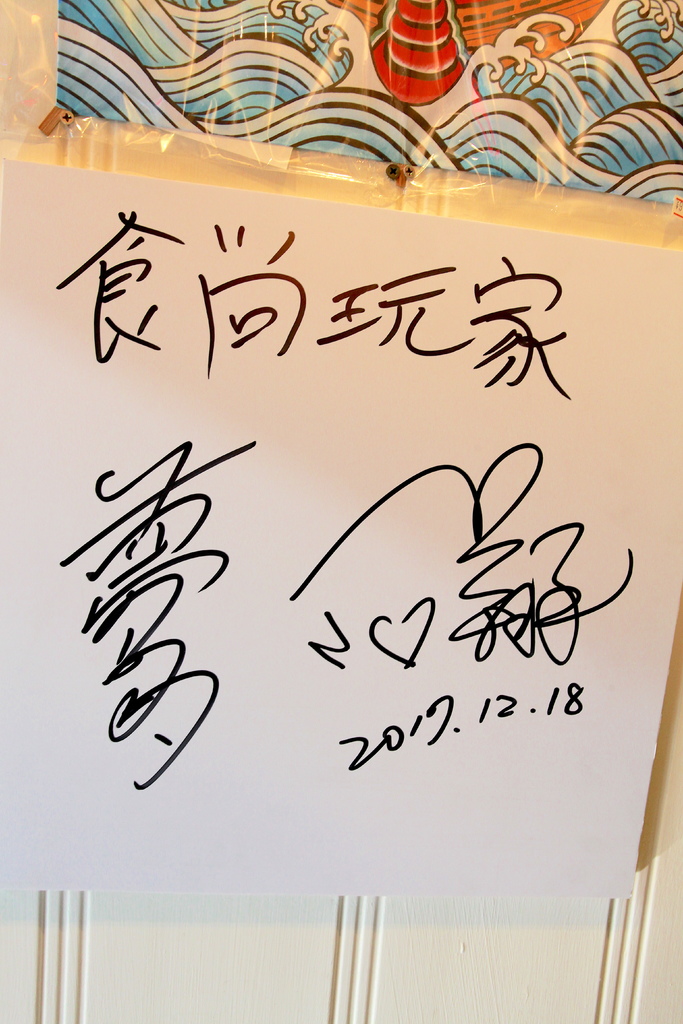 食尚玩家
夢多
2017.12.18